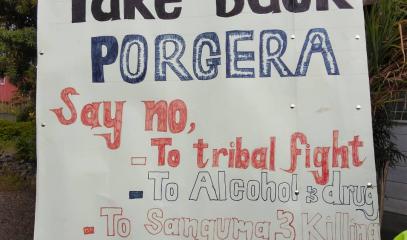 Take Back
PORGERA
Say no,
- To tribal fight
- To Alcohol & drug
- To Sanguma & Killing